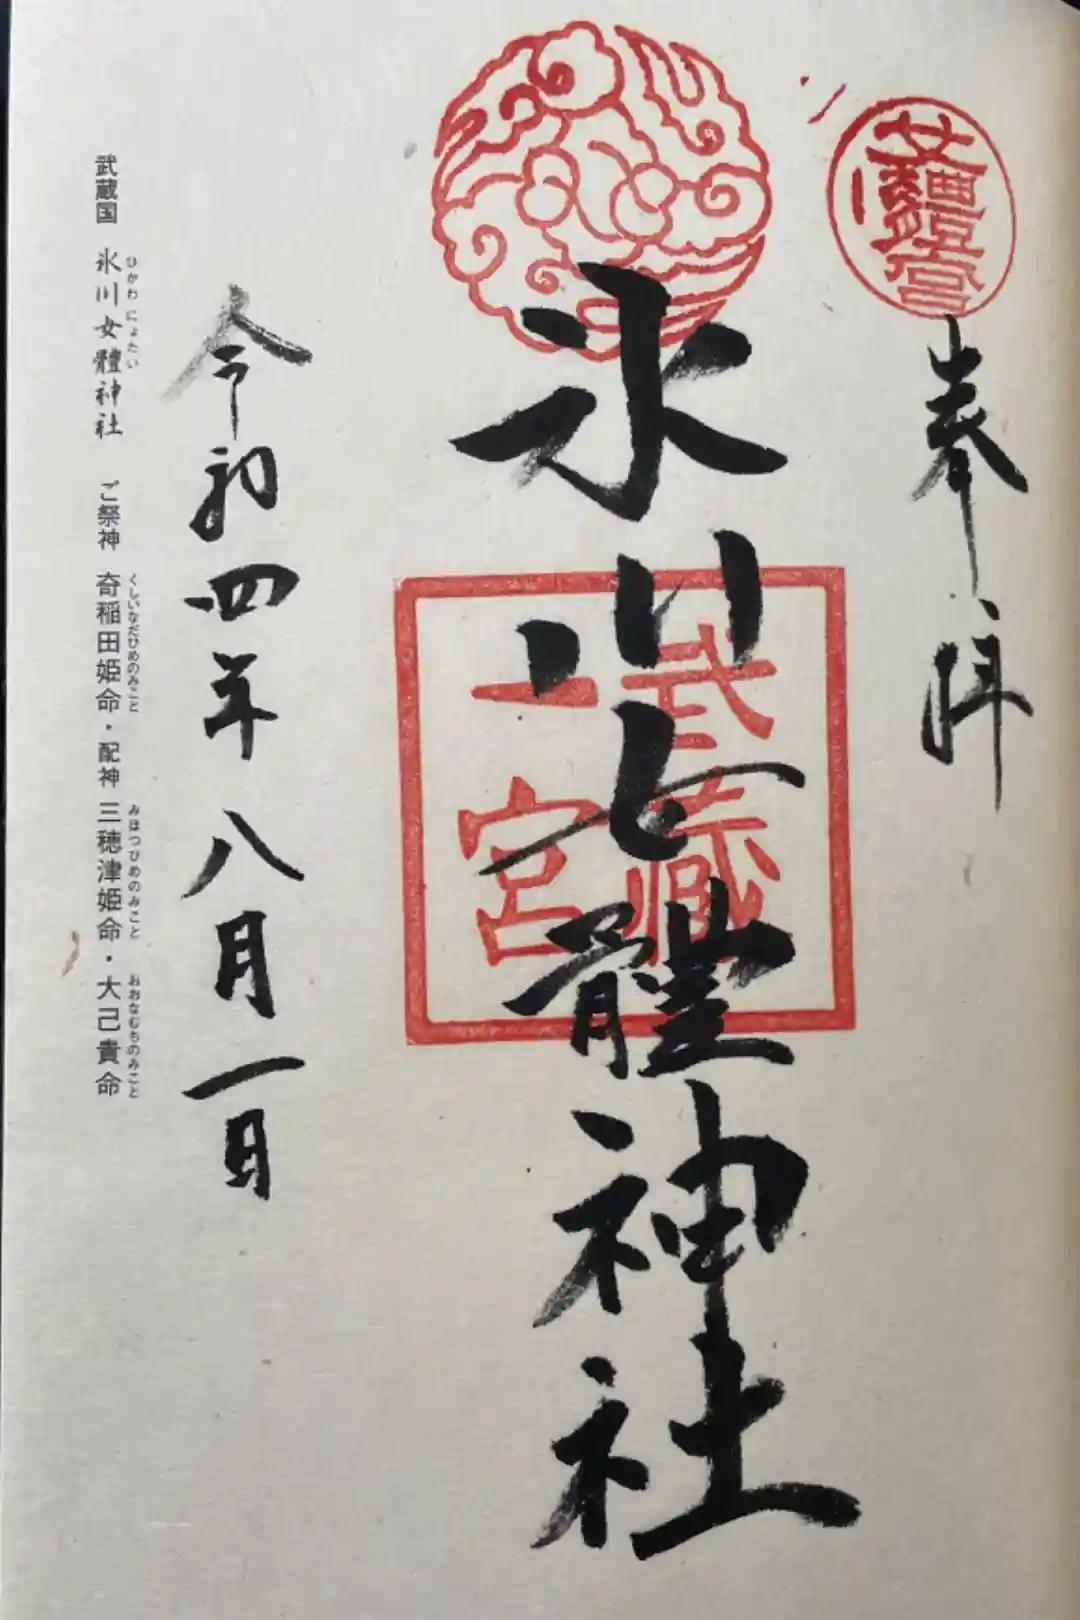 奉拝
女體宮
氷川女體神社
武蔵
一宮
令和四年八月一日
武蔵国 氷川女體神社 ご祭神 奇稲田姫命・配神 三穂津姫命・大己貴命
ひかわにょたい くしいなだひめのみこと みほつひめのみこと おおなむちのみこと